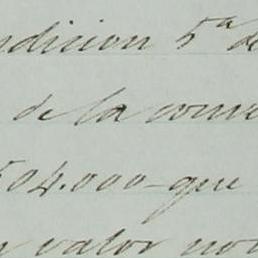 ndicion 5ª de
de la conve
504.000 - que
valor no